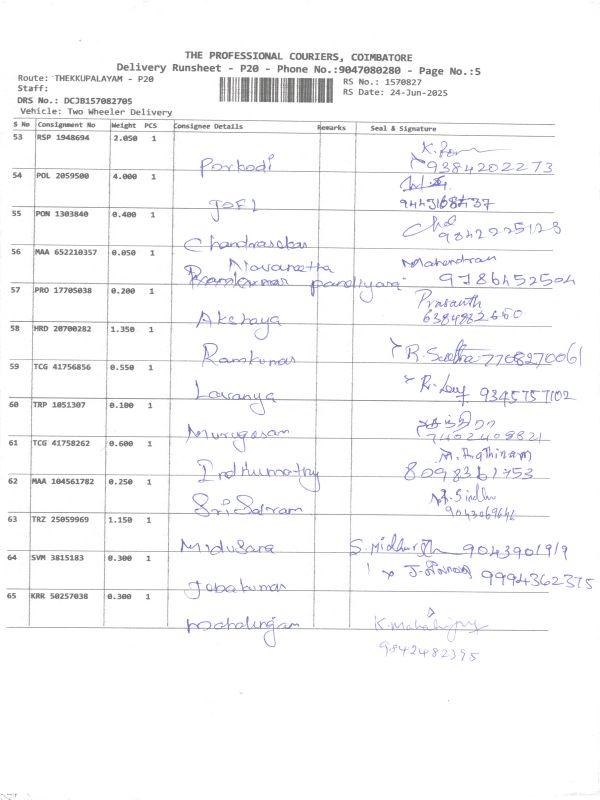 THE PROFESSIONAL COURIERS, COIMBATORE
Delivery Runsheet - P20 - Phone No.:9047080280 - Page No.:5
Route: THEKKUPALAYAM - P20 RS No.: 1570827
Staff: RS Date: 24-Jun-2025
DRS No.: DCJB157082705
Vehicle: Two Wheeler Delivery
S No Consignment No Weight PCS Consignee Details Remarks Seal & Signature
53 RSP 1948694 2.050 1 Porkodi 9384202273
54 POL 2059500 4.000 1
55 PON 1303840 0.400 1 Chandrasekar 9842225123
56 MAA 652210357 0.050 1 Navaneetha pandiyara Mahendran 9786452504
57 PRO 17705038 0.200 1 Akshaya Prasanth
58 HRD 20700282 1.350 1 Ramkumar 7708270061
59 TCG 41756856 0.550 1 Lavanya 9345757102
60 TRP 1051307 0.100 1 Murugesan 7402409821
61 TCG 41758262 0.600 1 Indhumathy 8098361753
62 MAA 104561782 0.250 1 Sri Sairam
63 TRZ 25059969 1.150 1 Midusara 9043901919
64 SVM 3815183 0.300 1 Jebakumar 9994362375
65 KRR 50257038 0.300 1 9842482395